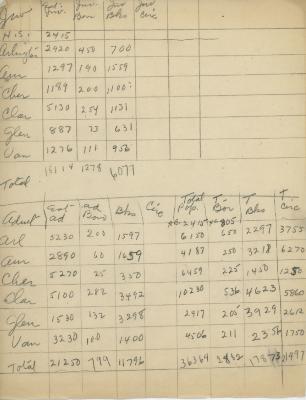 Juv Est- Juv. Juv Bor Juv Bks Juv Circ
H.S. 2415
Arlington 2920 450 700
Ann 1297 190 1559
Cher 1189 200 1100
Clar 5130 254 1131
Glen 887 73 631
Van 1276 111 956
Total 15114 1278 6077
Adult Est- ad ad Bor Bks Circ Total Pop. T Bor T Bks T Circ
Arl 3230 200 1597 6150 650 2297 3755
Ann 2890 60 1659 4187 250 3218 6270
Cher 5270 25 350 6459 225 1450 1250
Clar 5100 282 3492 10230 536 4623 5860
Glen 1530 132 3298 2917 205 3929 2612
Van 3230 100 1400 4506 211 2356 1750
Total 21250 799 11796 36364 17873 21497